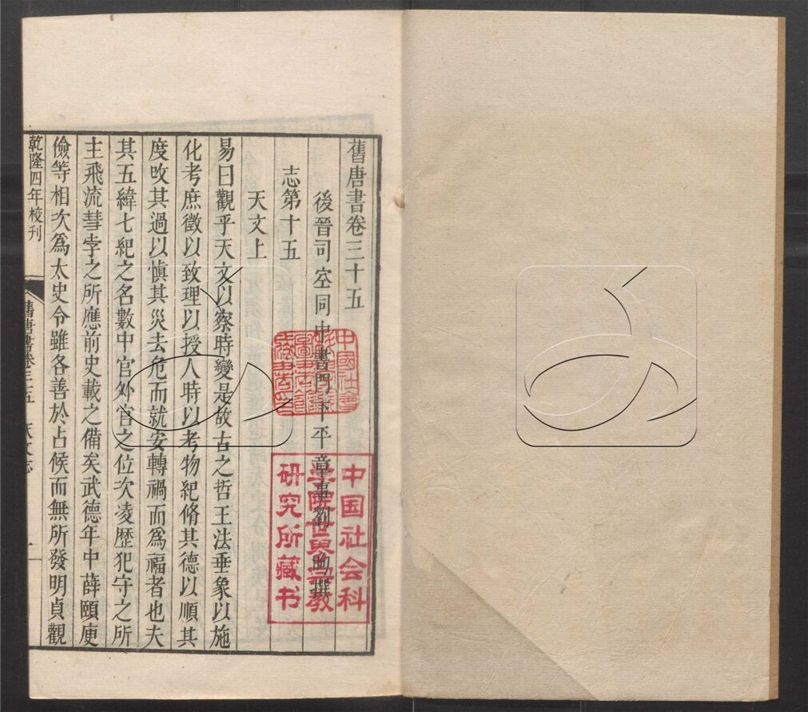 舊唐書卷三十五
後晉司空同中書門下平章事劉昫撰
志第十五
天文上
易曰觀乎天文以察時變是故古之哲王法垂象以施
化考庶徵以致理以授人時以考物紀脩其德以順其
度改其過以慎其災去危而就安轉禍而為福者也夫
其五緯七紀之名數中官外官之位次凌歷犯守之所
主飛流彗孛之所應前史載之備矣武德年中薛頤庾
儉等相次為太史令雖各善於占候而無所發明貞觀
乾隆四年校刊
舊唐書卷三十五 天文志 一
中国社会科
学院世界宗教
研究所藏书